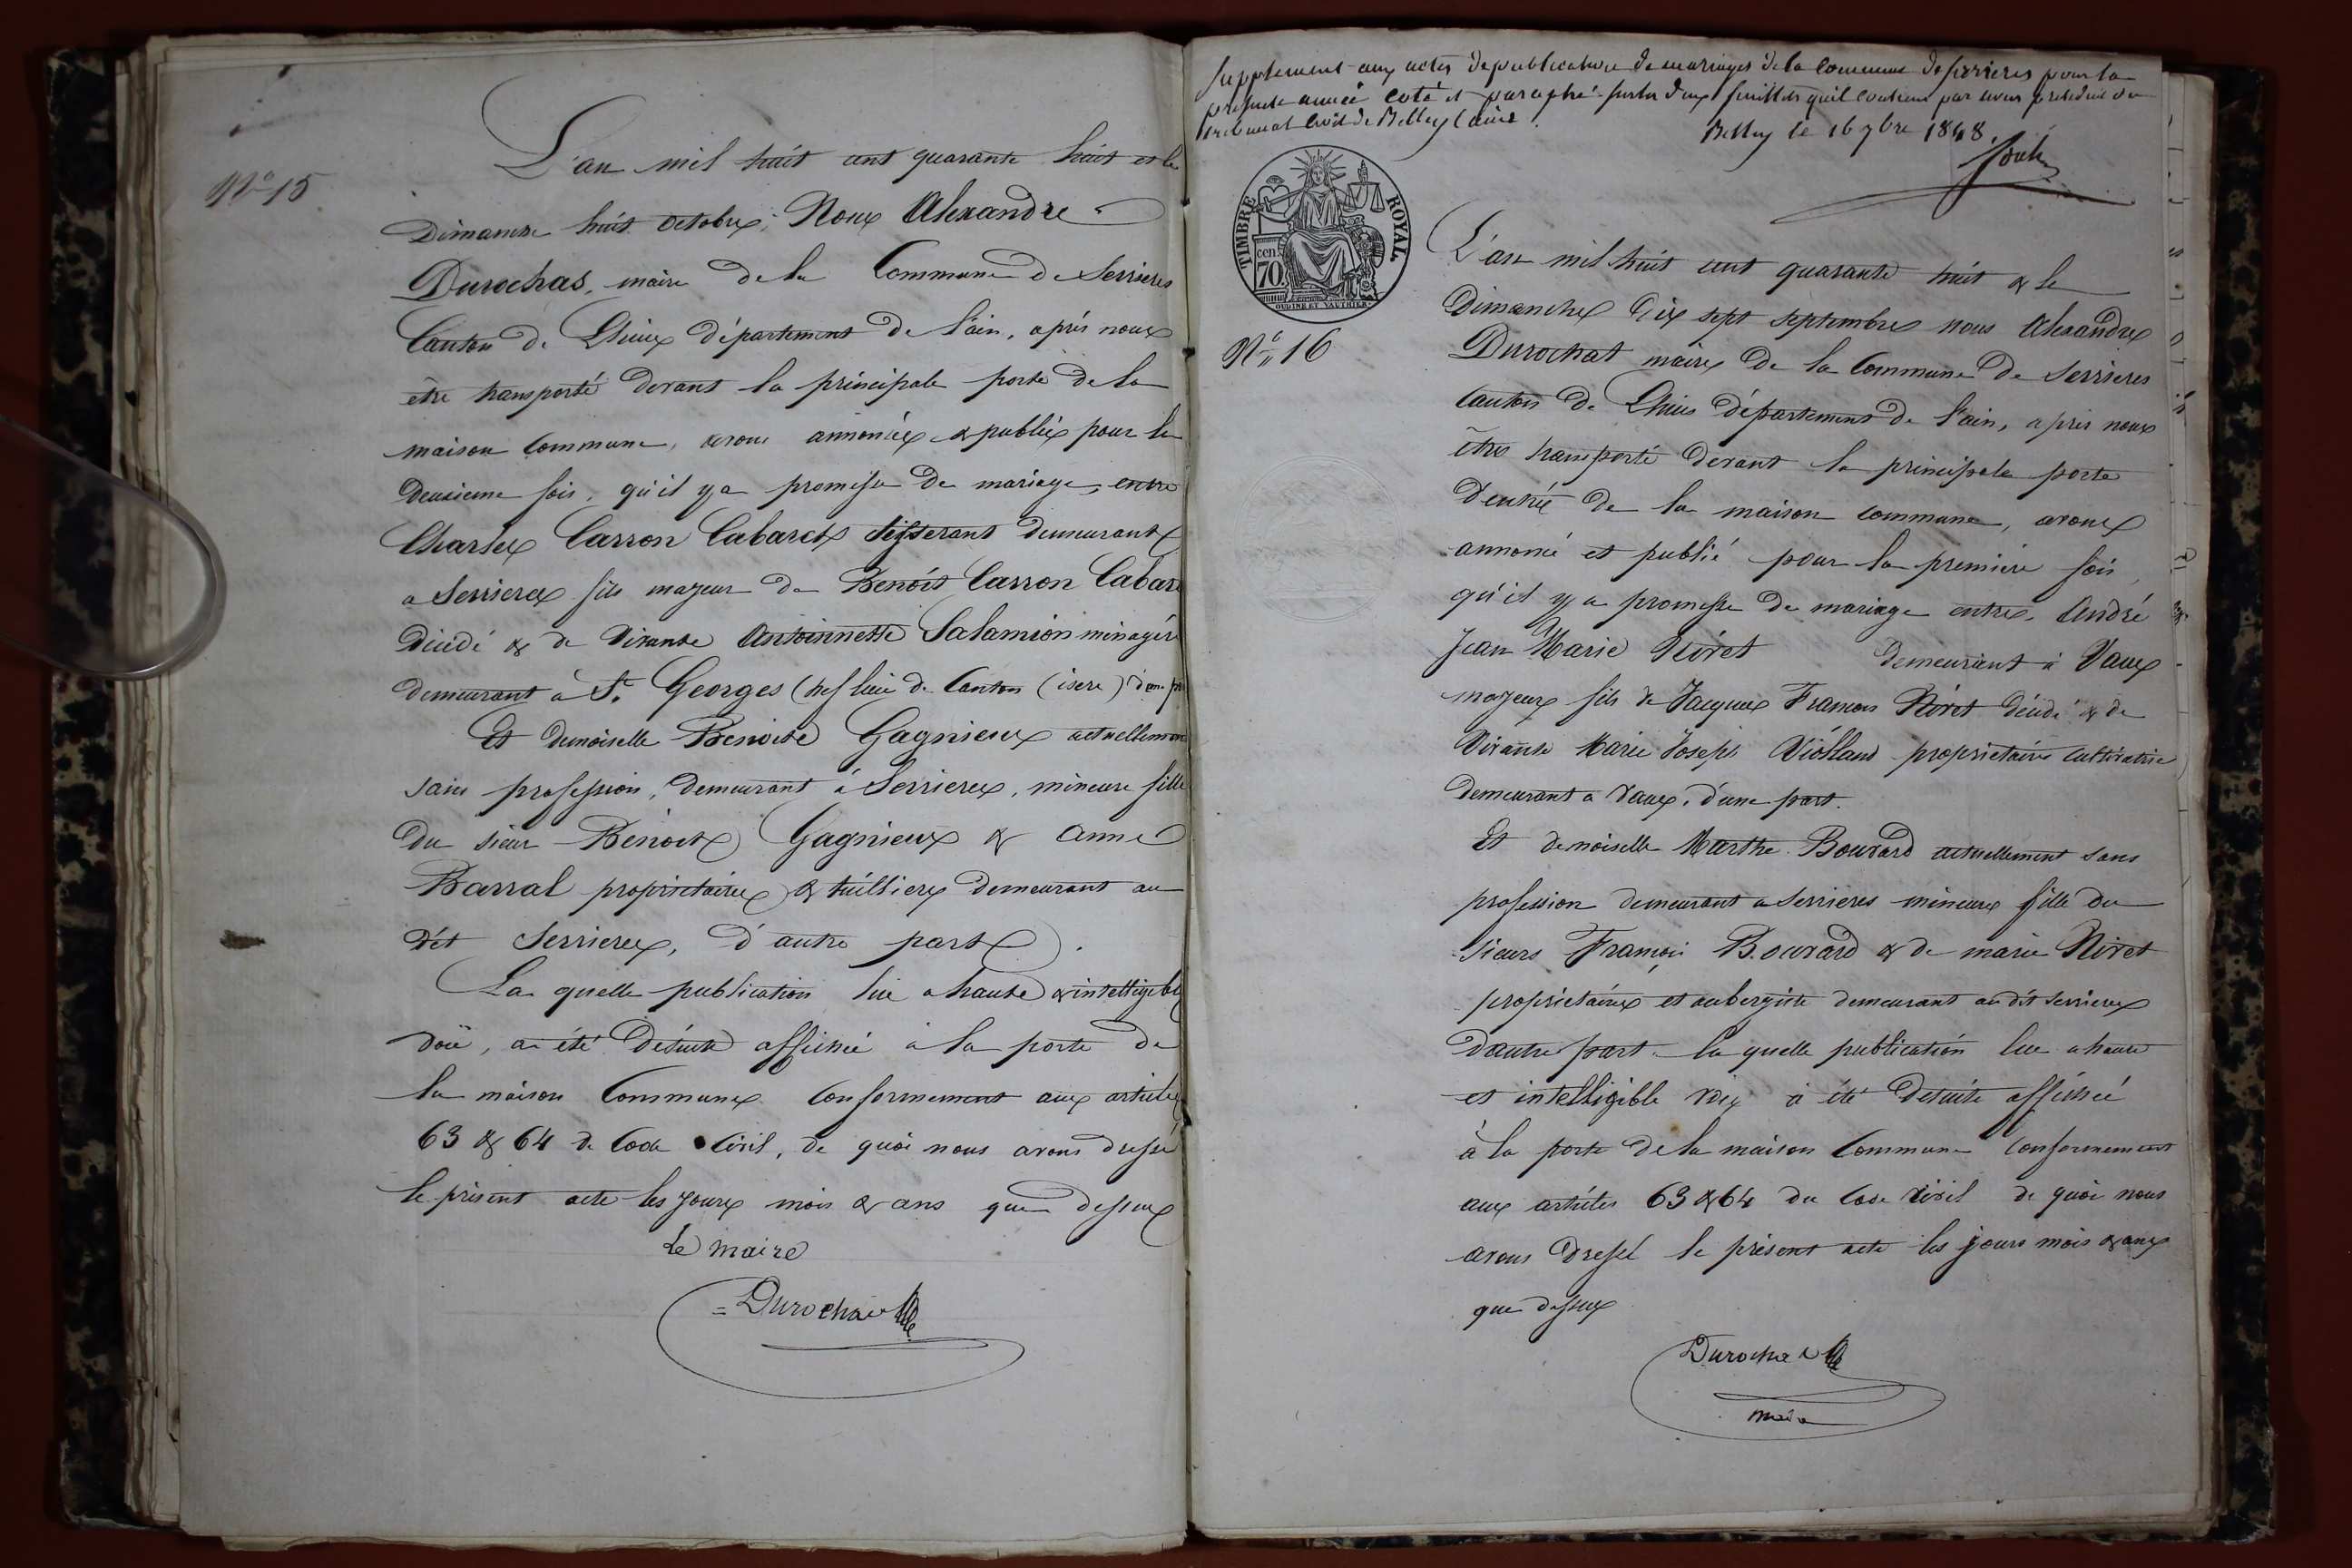 N° 15
L'an mil huit cent quarante huit et le
Dimanche huit octobre, Nous Alexandre
Durochas, maire de la Commune de Serrieres
Canton de Lhuis département de l'ain, après nous
être transporté devant la principale porte de la
maison Commune, avons annoncée & publiée pour la
deuxieme fois, qu'il y a promesse de mariage, entre
Charles Carron Cabaret tisserant demeurant
a Serrieres fils majeur de Benoit Carron Cabare
décédé & de vivante Antoinnette Salamion ménagère
demeurant à St Georges Chef lieu de Canton (isere) d'une p
Et demoiselle Benoite Gagnieux actuellement
sans profession, demeurant à Serrieres, mineure fille
du sieur Benoit Gagnieux & anne
Barral proprietaires & tuilliers demeurant au
dit Serrieres, d'autre part.
La quelle publication lue a haute & intelligible
voix, a été desuite affichée à la porte de
la maison Commune Conformement aux articles
63 & 64 de Code Civil, de quoi nous avons dressé
le présent acte les jours mois & ans que dessus
Le maire
Durochat
Supplement aux actes de publication de mariages de la Commune de serrieres pour la
presente année coté et paraphé sur les deux feuillets qu'il contient par nous président du
tribunal Civil de Belley (ain).
Belley le 16 7bre 1848.
TIMBRE ROYAL
70 cen.
OUDINE ET VAUTHIER
N° 16
L'an mil huit cent quarante huit & le
Dimanche dix sept septembre nous Alexandre
Durochat maire de la Commune de Serrieres
Canton de Lhuis département de l'ain, après nous
être transporté devant la principale porte
d'entrée de la maison Commune, avons
annoncé et publié pour la première fois,
qu'il y a promesse de mariage entre André
Jean Marie Nivet demeurant à Vaux
majeur fils de Jacques François Nivet décédé & de
Vivante Marie Joseph Violland proprietaire cultivatrice
demeurant a Vaux, d'une part.
Et demoiselle Marthe Bouvard actuellement sans
profession demeurant a Serrieres mineure fille du
sieurs François Bouvard & de marie Nivet
proprietaires et aubergiste demeurant au dit serrieres
d'autre part. la quelle publication lue a haute
et intelligible voix à été desuite affichée
à la porte de la maison Commune Conformement
aux articles 63 & 64 du Code Civil de quoi nous
avons dressé le présent acte les jours mois & ans
que dessus
Durochat
maire